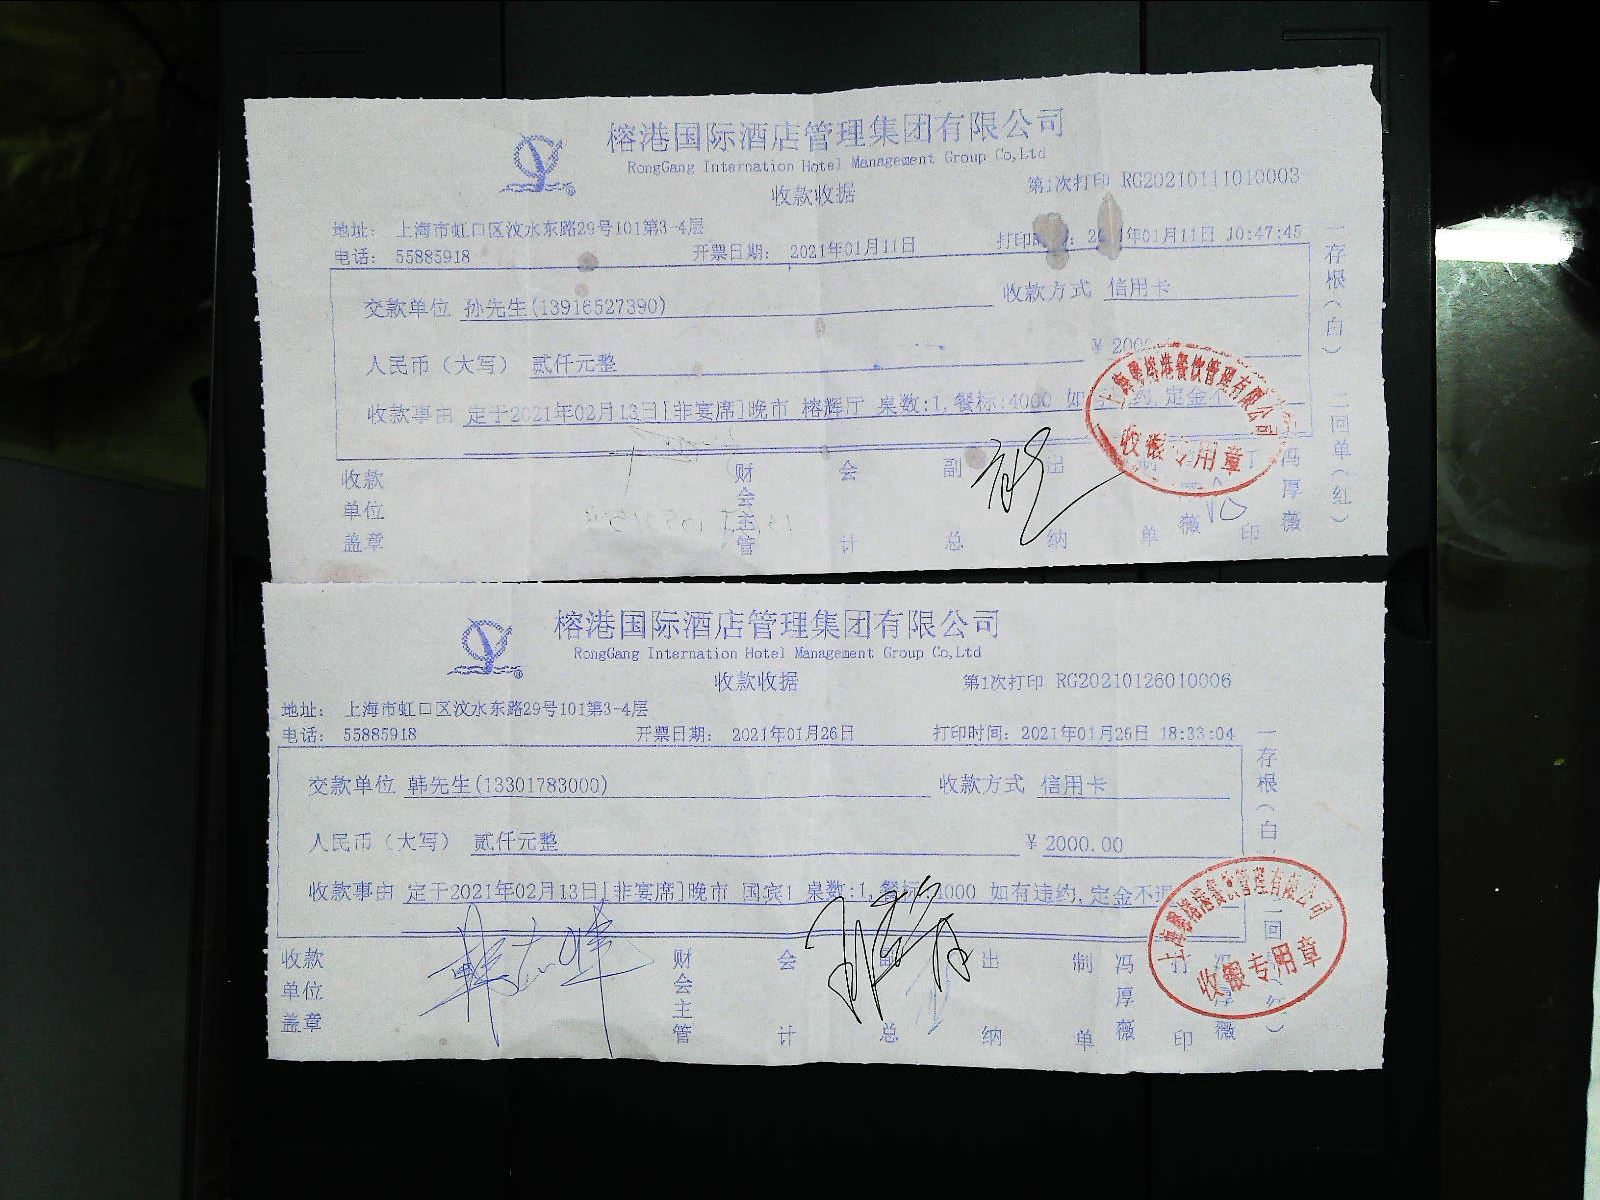 榕港国际酒店管理集团有限公司
RongGang Internation Hotel Management Group Co,Ltd
收款收据
第1次打印 RG20210111010003
地址： 上海市虹口区汶水东路29号101第3-4层
电话： 55885918 开票日期： 2021年01月11日 打印时 年01月11日 10:47:45
交款单位 孙先生(13916527390) 收款方式 信用卡
人民币（大写） 贰仟元整 ¥ 200
收款事由 定于2021年02月13日[非宴席]晚市 榕辉厅 桌数:1,餐标:4000 如 约,定金不
收款单位盖章 财会主管 会计 副总 出纳 制单 薇 打印 冯厚薇
一存根(白) 二回单(红)
收银专用章
榕港国际酒店管理集团有限公司
RongGang Internation Hotel Management Group Co,Ltd
收款收据
第1次打印 RG20210126010006
地址： 上海市虹口区汶水东路29号101第3-4层
电话： 55885918 开票日期： 2021年01月26日 打印时间：2021年01月26日 18:33:04
交款单位 韩先生(13301783000) 收款方式 信用卡
人民币（大写） 贰仟元整 ¥ 2000.00
收款事由 定于2021年02月13日[非宴席]晚市 国宾1 桌数:1,餐标:4000 如有违约,定金不退
收款单位盖章 财会主管 会计 副总 出纳 制单 冯厚薇 打印 冯厚薇
一存根(白 二回
收银专用章